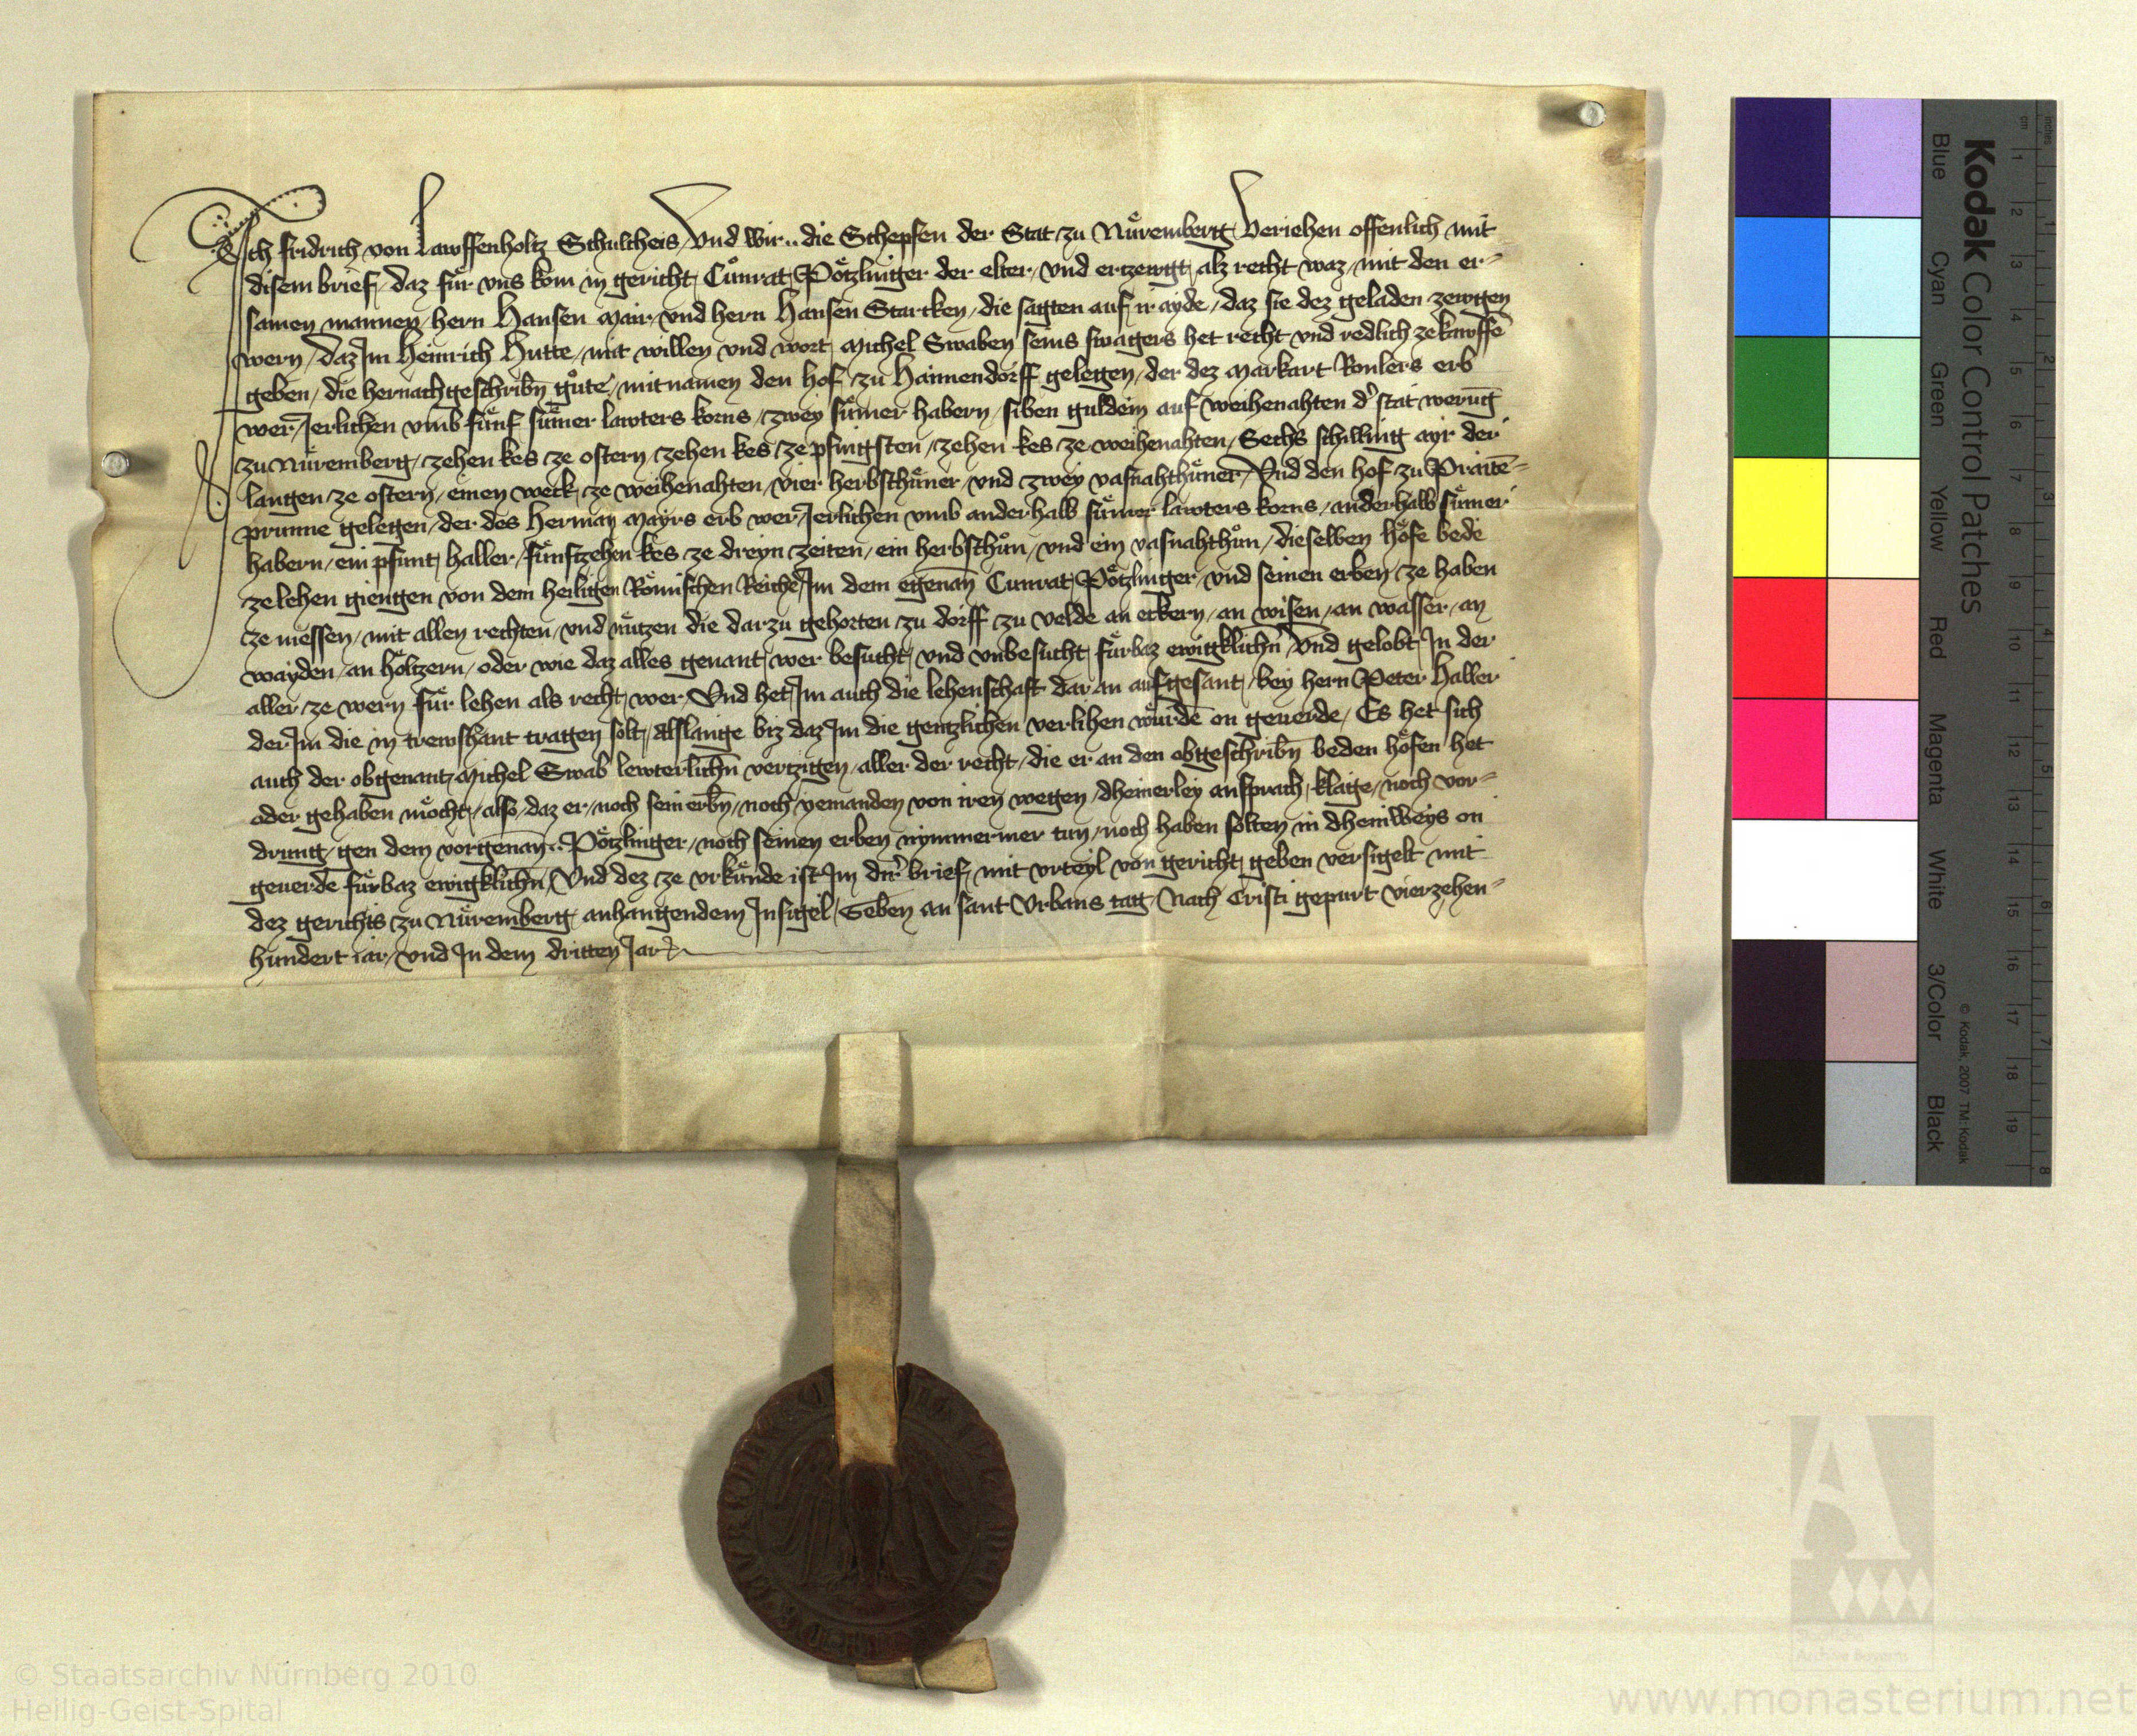 Ich Fridrich von Lawffenholtz Schultheis / Vnd Wir .. die Schepfen der Stat zu Nuͤremberg Veriehen offenlich mit
disem brief / daz fuͤr vns kom in gericht / Cuͦnrat Poͤtzlinger der elter / vnd erzewgt / alz recht waz / mit den er=
samen mannen / hern Hansen Mair / vnd hern Hansen Starcken / die sagten auf ir ayde / daz sie dez geladen zewgen
wern / daz Im Heinrich Hutte / mit willen vnd wort / Michel Swaben seins swagers het recht vnd redlich ze kawffē
geben / die hernachgeschribn̄ guͤte / mitnamen den hof / zu Haimendorff gelegen / der dez Markart Ronlers erb
wer / Ierlichen vmb fuͤnf suͤmer lawters korns / zwey suͤmer habern / siben guldein auf weihenahten dˀ stat werūg
zu Nuͤremberg / zehen kes ze ostern / zehen kes ze pfingsten / zehen kes ze weihenahten / Sechs schilling ayr der
langen ze ostern / einen weck / ze weihenahten / vier herbsthuͤner / vnd zwey vasnahthuͤner / Vnd den hof zu Praitē=
prunne gelegen / der des Herman Mayrs erb wer / Ierlichen vmb anderhalb suͤmer lawters korns / anderhalb suͤmer
habern / ein pfunt / haller / fuͤnftzehen kes ze dreyn zeiten / ein herbsthuͦn / vnd ein vasnahthuͦn / dieselben hoͤfe bede
ze lehen giengen von dem heiligen Roͤmischen Reiche / Im dem egenan̄ Cunrat Poͤtzlinger / vnd seinen erben / ze haben
ze niessen / mit allen rechten / vnd nuͤtzen die darzu gehorten / zu dorff zu velde an eckern / an wisen / an wasser / an
wayden / an hoͤltzern / oder wie daz alles genant / wer besucht / vnd vnbesucht / fuͤrbaz ewigklichn̄ / Vnd gelobt / In der
aller / ze wern fuͤr lehen als recht / wer / Vnd het / Im auch die lehenschaft dar an aufgesant / bey hern Peter Haller
der Im die in trewshant tragen solt / alslange biz daz Im die gentzlichen verlihen wuͤrdē on geuerde / Es het sich
auch der obgenant Michel Swab lewterlichn̄ vertzigen / aller der recht / die er an den obgeschribn̄ beden hoͤfen het
oder gehaben moͤcht / also / daz er / noch sein erbn̄ / noch yemanden von iren wegen / dheinerley ansprach / klage / noch vor=
drung / gen dem vorgenan̄ .. Poͤtzlinger / noch seinen erben nymmermer tun / noch haben solten in dhein Weys on
geuerde fuͤrbaz ewigklichn̄ / Vnd dez ze vrkuͤnde ist Im dirˀ brief / mit vrteyl von gericht / geben versigelt mit
dez gerichts zu Nuͤremberg anhangendem Insigel / Geben an sant Vrbans tag / Nach Cristi gepurt vierzehen=
hundert iar / vnd In dem dritten Jar
Kodak Color Control Patches
Blue Cyan Green Yellow Red Magenta White 3/Color Black
© Kodak, 2007 TM: Kodak
inches 1 2 3 4 5 6 7 8
cm 1 2 3 4 5 6 7 8 9 10 11 12 13 14 15 16 17 18 19
© Staatsarchiv Nürnberg 2010
Heilig-Geist-Spital
www.monasterium.net